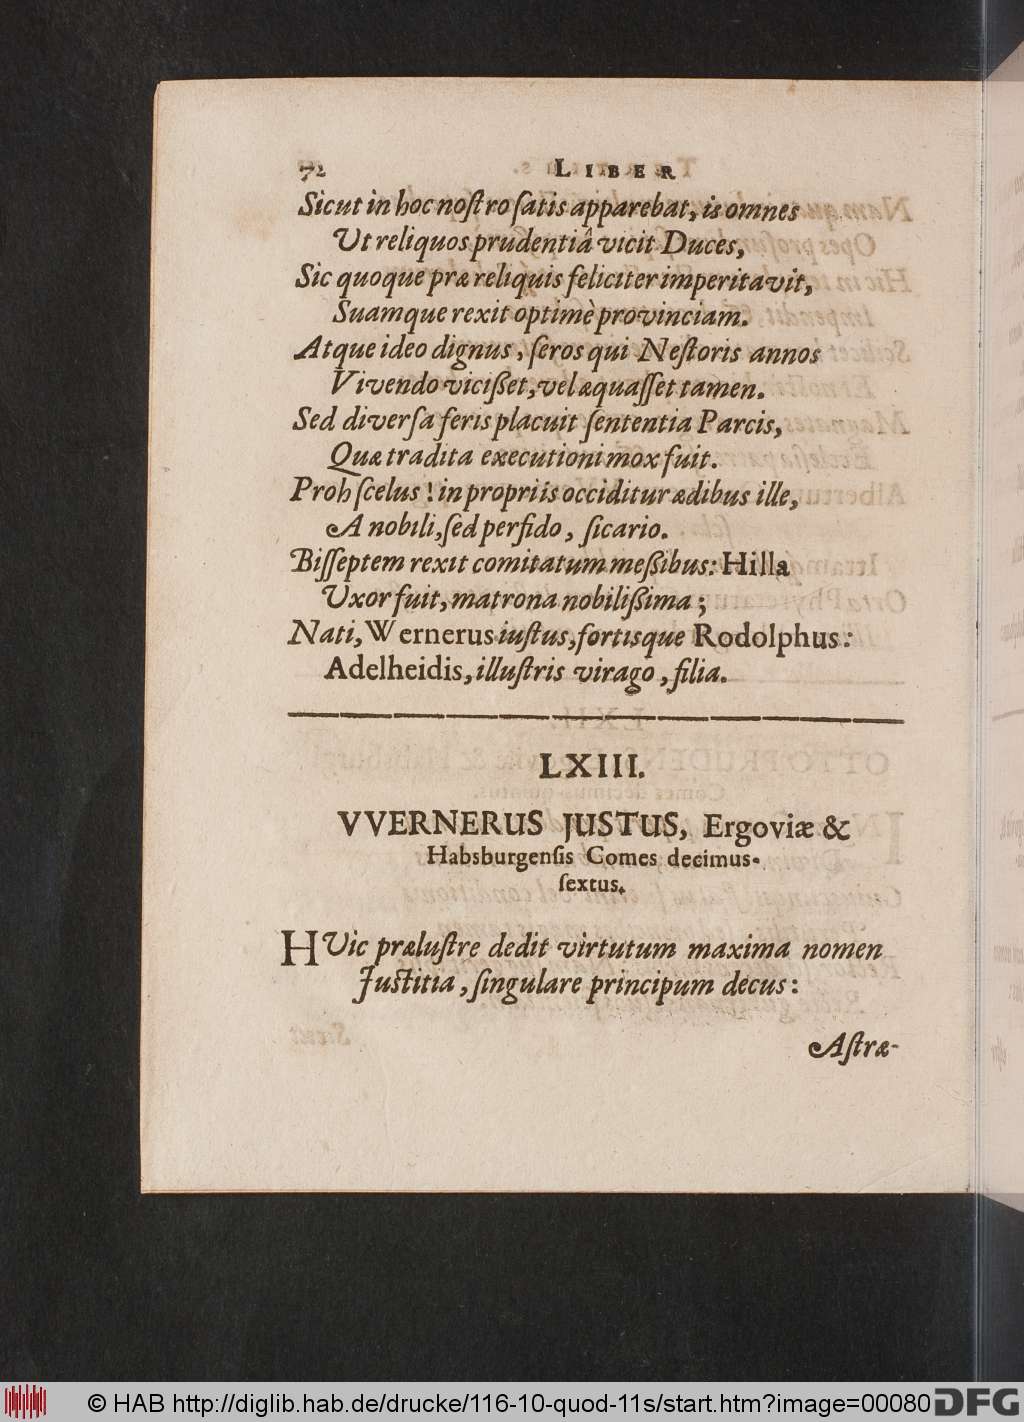 72 LIBER
Sicut in hoc noſtro ſatis apparebat, is omnes
Ut reliquos prudentiâ vicit Duces,
Sic quoque præ reliquis feliciter imperitavit,
Suamque rexit optimè provinciam.
Atque ideo dignus, ſeros qui Neſtoris annos
Vivendo vicißet, vel æquaſſet tamen.
Sed diverſa feris placuit ſententia Parcis,
Quæ tradita executioni mox fuit.
Proh ſcelus! in propriis occiditur ædibus ille,
A nobili, ſed perfido, ſicario.
Biſſeptem rexit comitatum meßibus: Hilla
Uxor fuit, matrona nobilißima;
Nati, Wernerus iuſtus, fortisque Rodolphus:
Adelheidis, illuſtris virago, filia.
LXIII.
VVERNERUS JUSTUS, Ergoviæ &
Habsburgenſis Comes decimus-
ſextus.
HUic præluſtre dedit virtutum maxima nomen
Juſtitia, ſingulare principum decus:
Aſtræ-
© HAB http://diglib.hab.de/drucke/116-10-quod-11s/start.htm?image=00080 DFG